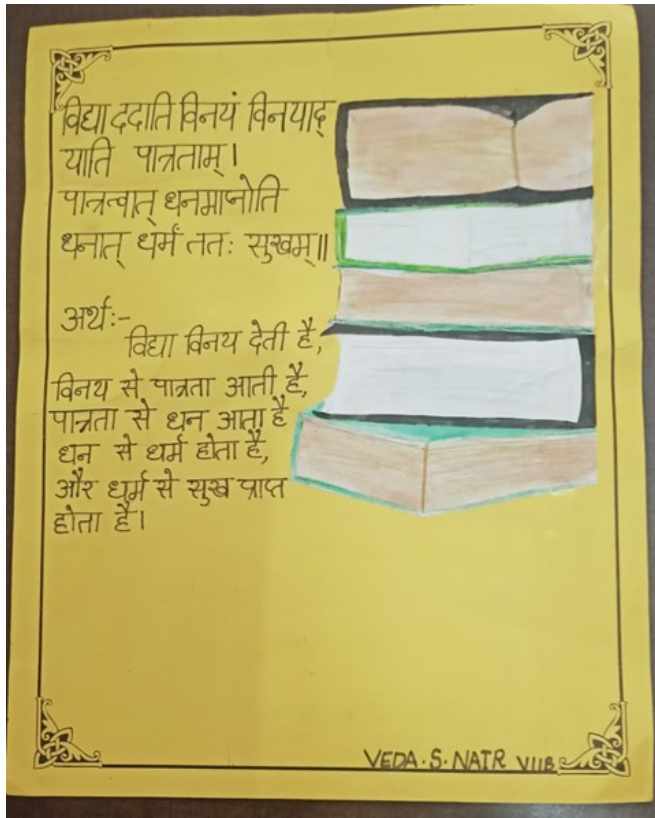 विद्या ददाति विनयं विनयाद्
याति पात्रताम्।
पात्रत्वात् धनमाप्नोति
धनात् धर्मं ततः सुखम्॥
अर्थः-
विद्या विनय देती है,
विनय से पात्रता आती है,
पात्रता से धन आता है
धन से धर्म होता है,
और धर्म से सुख प्राप्त
होता है।
VEDA.S.NAIR VIIB